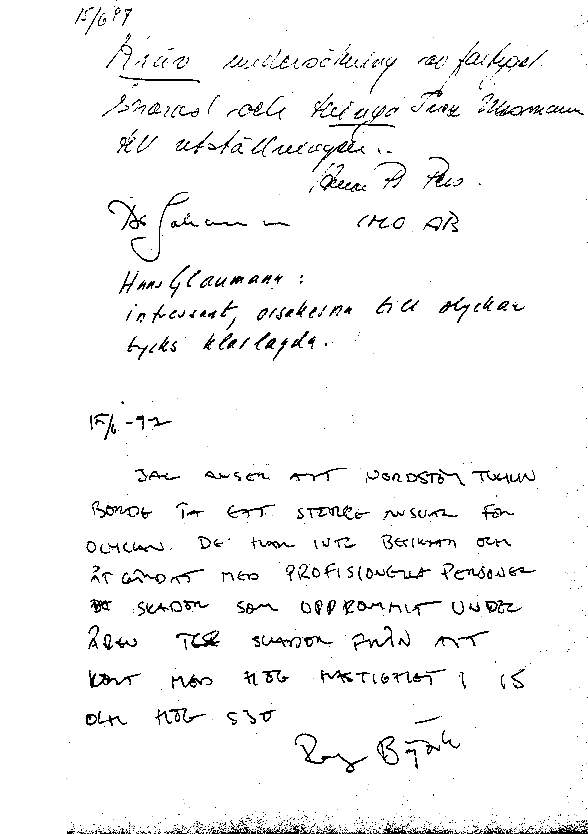 15/6 97
Kräv undersökning av fartyget
snarast och tvinga
till utställningen..
IMO AB
Hans Glaumann:
intressant, orsakerna till olyckan
tycks klarlagda.
15/6 -97
JAG ANSER ATT NORDSTRÖM THULIN
BORDE TA ETT STÖRRE ANSVAR FÖR
OLYCKAN. DE HAR INTE BESIKTAT OCH
ÅTGÄRDAT MED PROFISIONELLA PERSONER
SKADOR SOM UPPKOMMIT UNDER
ÅREN SKADOR FRÅN ATT
KÖRT MED HÖG HASTIGHET I IS
OCH HÖG SJÖ